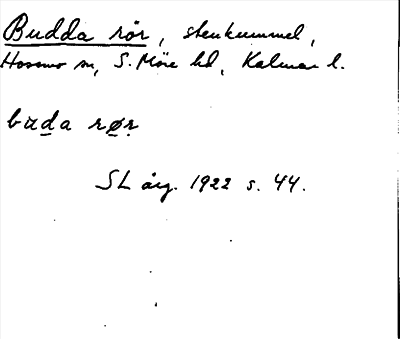 Budda rör, stenkummel,
Hossmo sn, S. Möre hd, Kalmar l.
bυd̲a rø̲r̲
SL årg. 1922 s. 44.